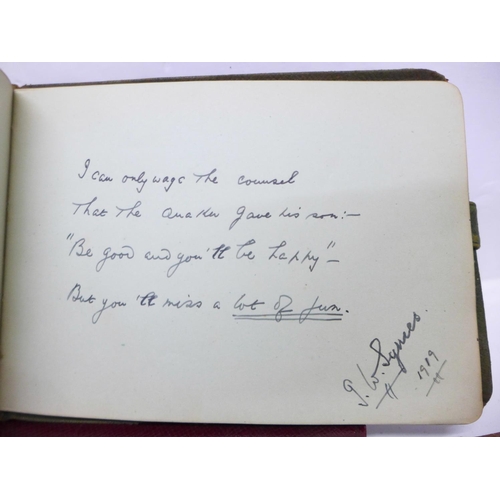 I can only wage the counsel
That the Quaker gave his son:—
"Be good and you'll be happy"—
But you'll miss a lot of fun.
J. W.
1919